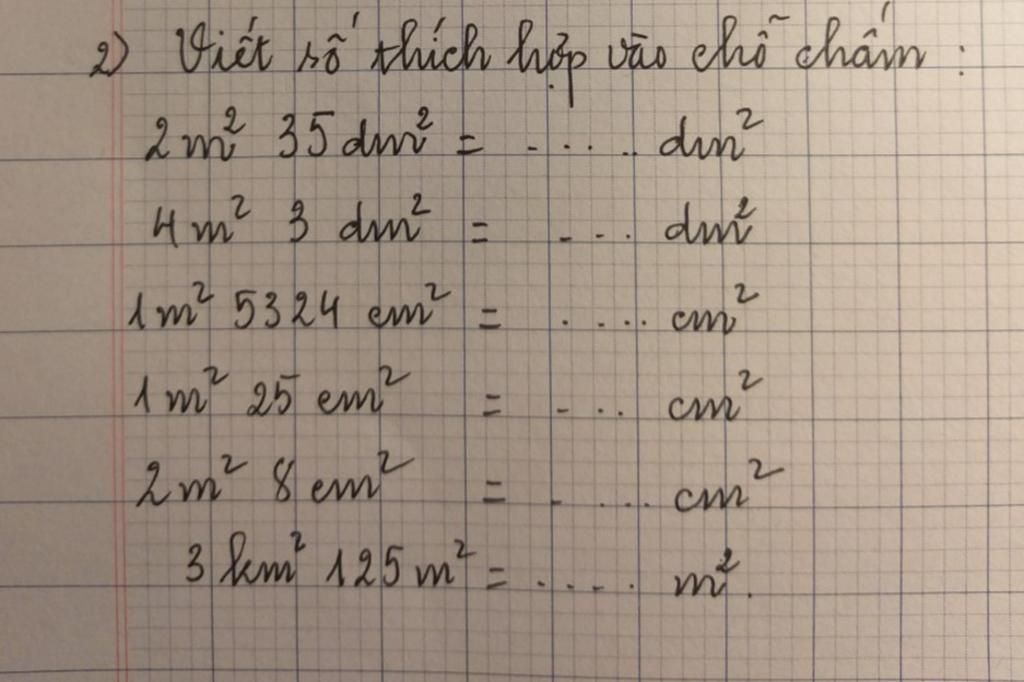 2) Viết số thích hợp vào chỗ chấm :
2m² 35dm² = ..... dm²
4m² 3 dm² = ... dm²
1m² 5324 cm² = ..... cm²
1m² 25 cm² = ... cm²
2m² 8cm² = ..... cm²
3 km² 125m² = ..... m².